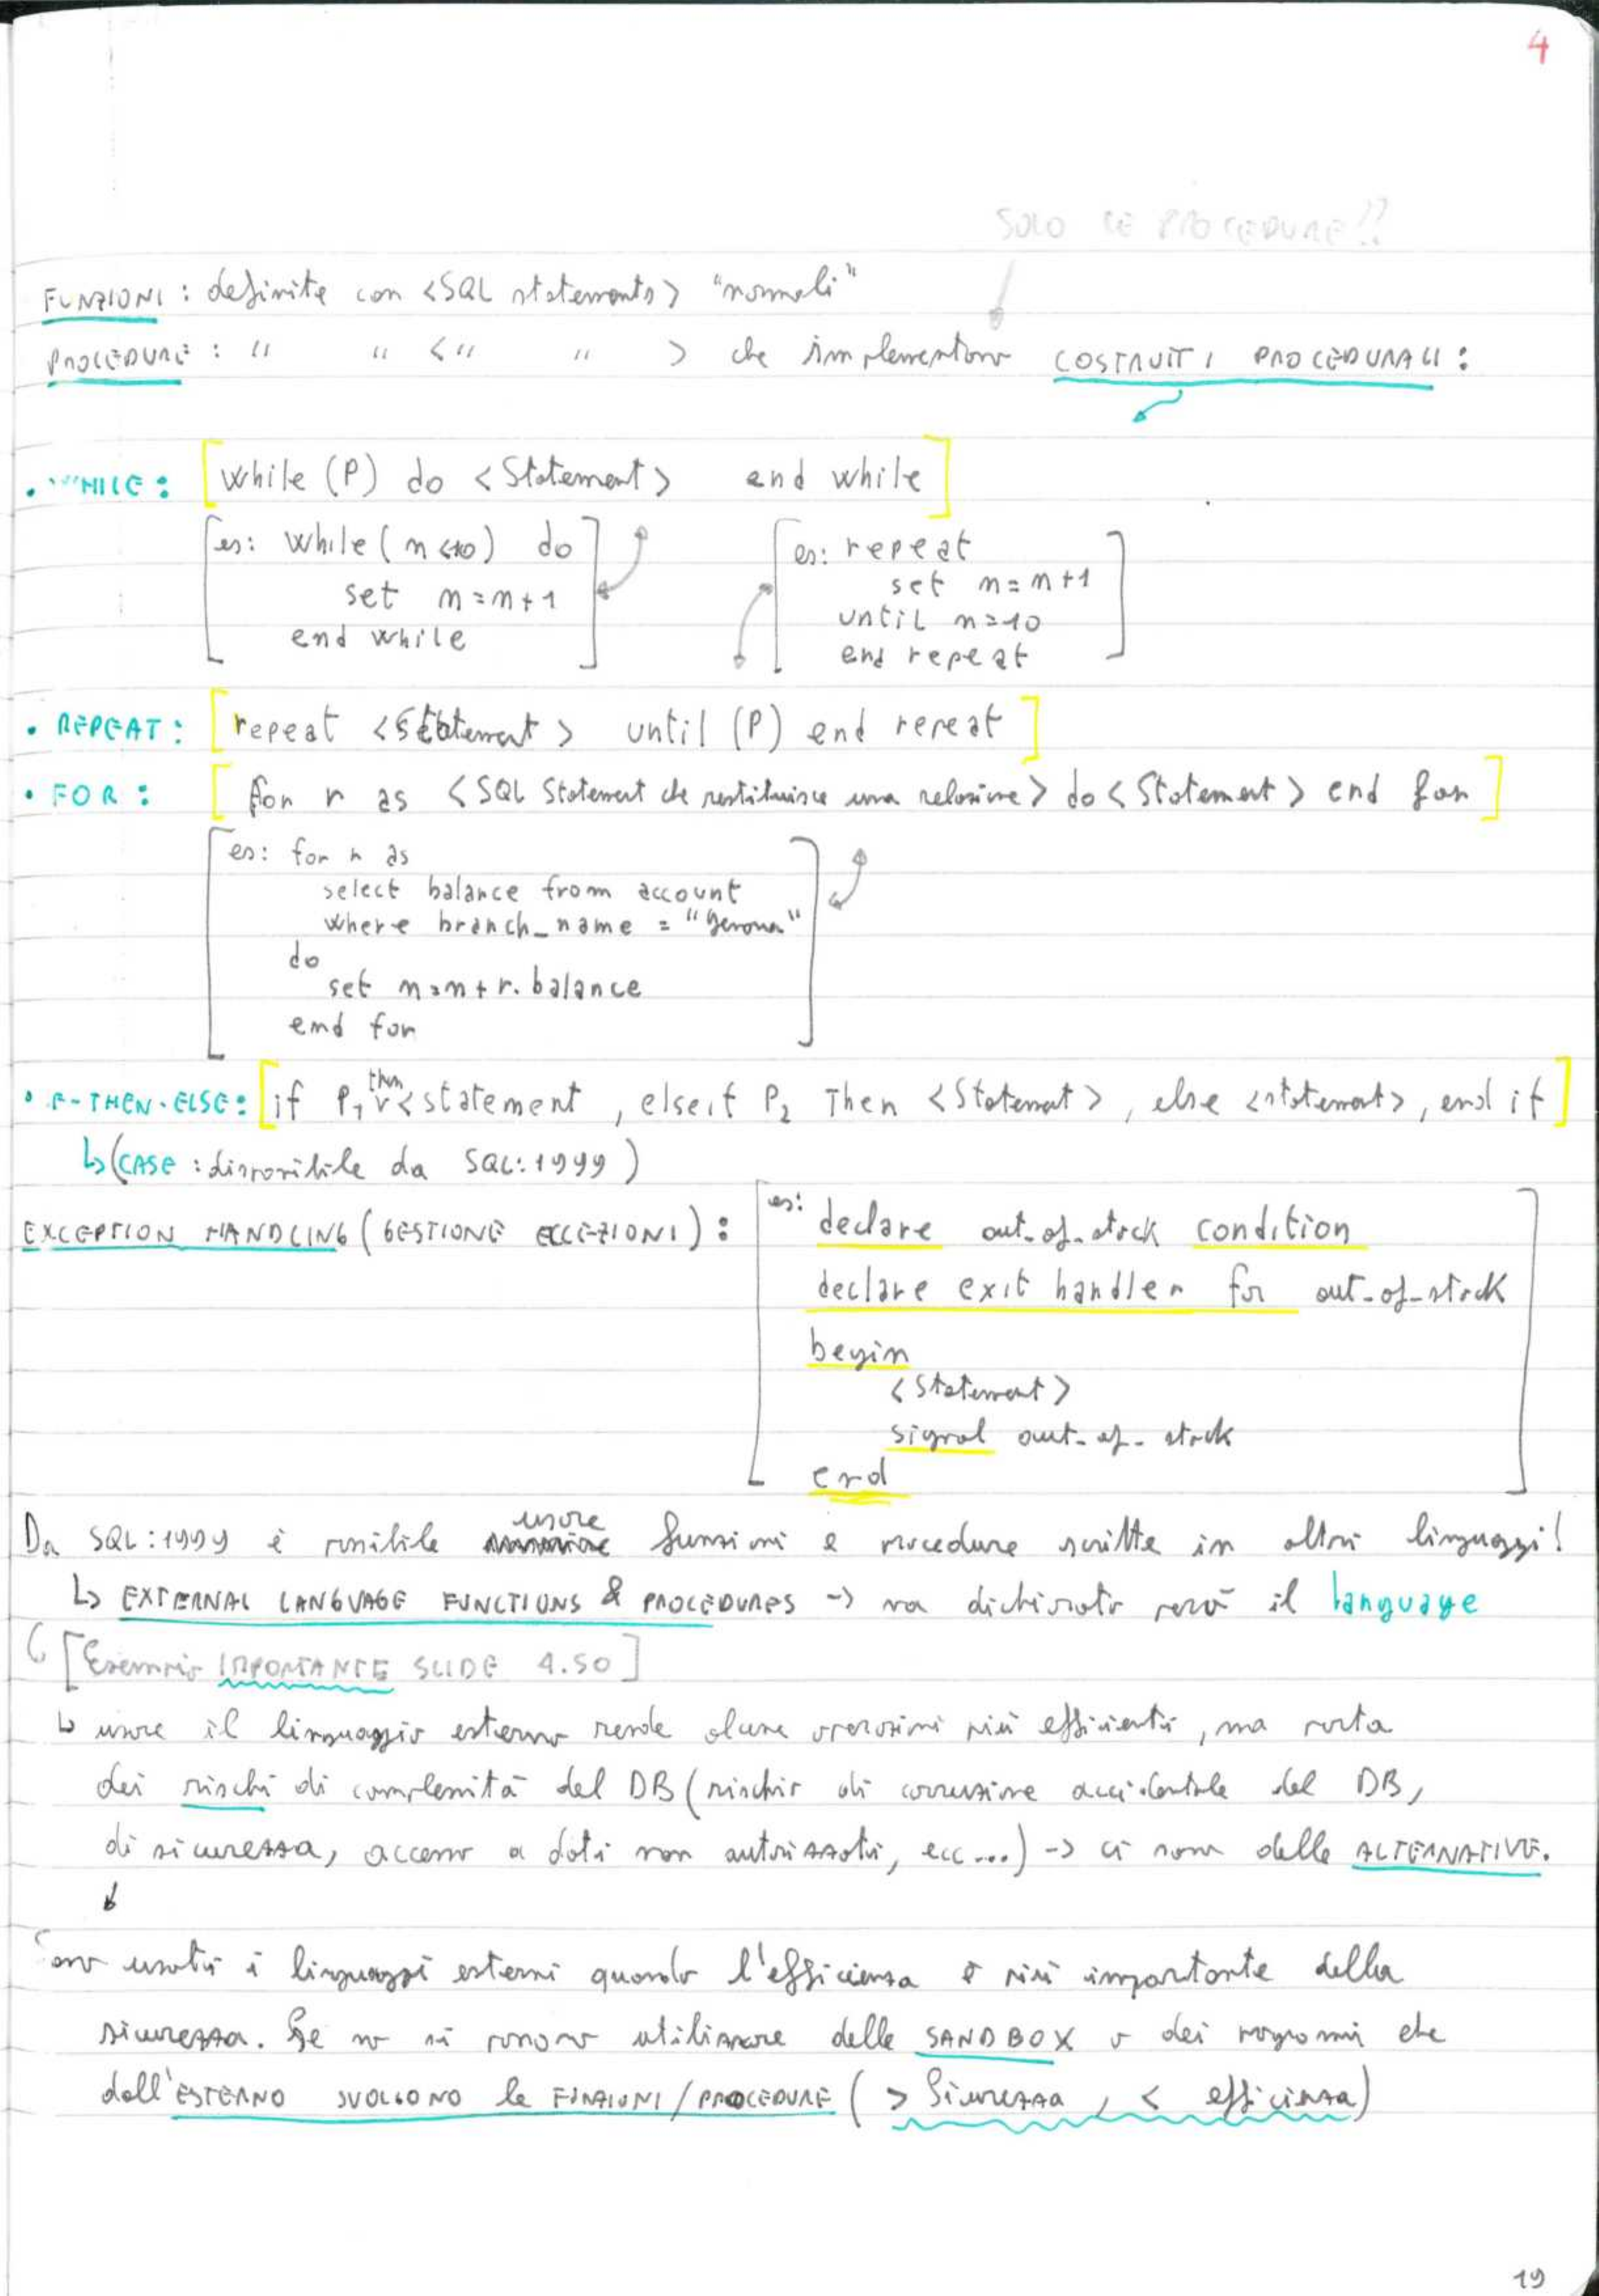 4
SOLO LE PROCEDURE!!
FUNZIONI : definite con <SQL statements> "normali"
PROCEDURE : " " <" " > che implementano COSTRUTTI PROCEDURALI :
• WHILE : [while (P) do <Statement> end while]
[es: while (n<10) do
set n=n+1
end while]
[es: repeat
set n=n+1
until n=10
end repeat]
• REPEAT : [repeat <Statement> until (P) end repeat]
• FOR : [for r as <SQL Statement che restituisce una relazione> do <Statement> end for]
[es: for r as
select balance from account
where branch_name = "Genova"
do
set n=n+r.balance
end for]
• IF-THEN-ELSE : [if P1 then <statement , elseif P2 Then <Statement> , else <statement> , end if]
↳ (CASE : disponibile da SQL:1999)
EXCEPTION HANDLING (GESTIONE ECCEZIONI) :
[es: declare out_of_stock condition
declare exit handler for out_of_stock
begin
<Statement>
signal out_of_stock
end]
Da SQL:1999 è possibile usare funzioni e procedure scritte in altri linguaggi!
↳ EXTERNAL LANGUAGE FUNCTIONS & PROCEDURES → va dichiarato però il language
[Esempio IMPORTANTE SLIDE 4.50]
↳ usare il linguaggio esterno rende alcune operazioni più efficienti, ma porta
dei rischi di complessità del DB (rischio di corruzione accidentale del DB,
di sicurezza, accesso a dati non autorizzati, ecc...) → ci sono delle ALTERNATIVE.
↓
Sono usati i linguaggi esterni quando l'efficienza è più importante della
sicurezza. Se no si possono utilizzare delle SANDBOX o dei programmi che
dall'ESTERNO SVOLGONO le FUNZIONI/PROCEDURE ( > Sicurezza , < efficienza)
19